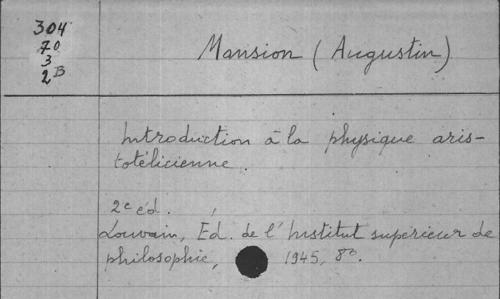 304
70
3
2B
Mansion (Augustin)
Introduction à la physique aris-
totélicienne.
2e éd.
Louvain, Éd. de l'Institut supérieur de
philosophie, 1945, 8o.